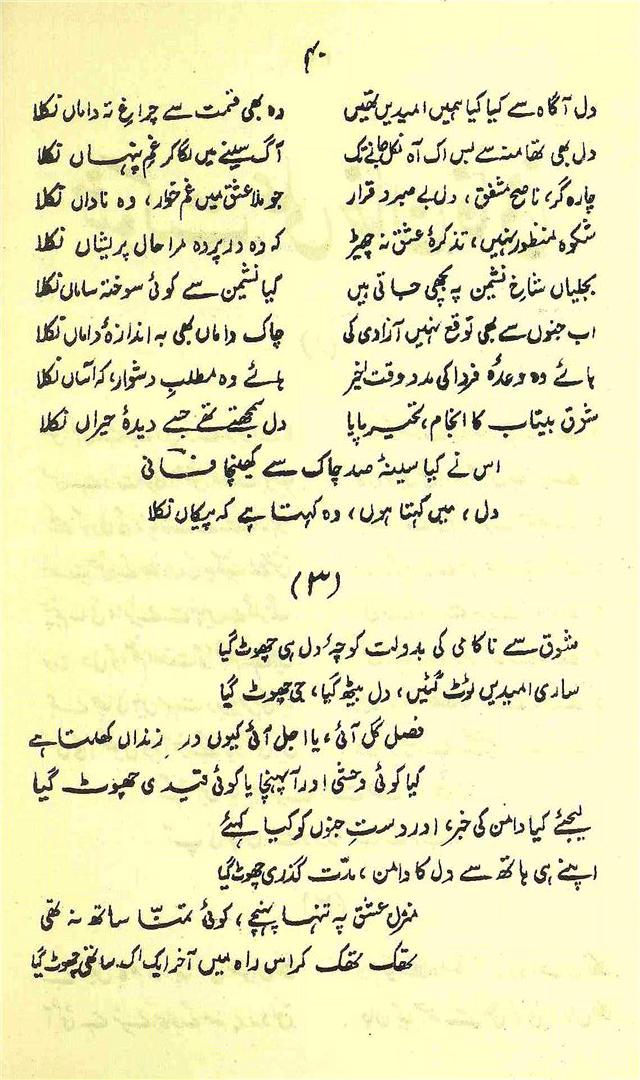 ۴۰
دل آگاہ سے کیا کیا ہمیں امیدیں تھیں وہ بھی قسمت سے چراغِ تہ داماں نکلا
دل بھی تھا منہ سے بس اک آہ نکل جانے تک آگ سینے میں لگا کر غمِ پنہاں نکلا
چارہ گر، ناصح مشفق، دل بے صبر و قرار جو ملا عشق میں غم خوار، وہ ناداں نکلا
شکوہ منظور نہیں، تذکرۂ عشق نہ چھیڑ کہ وہ در پردہ مرا حال پریشاں نکلا
بجلیاں شاخِ نشیمن پہ بچھی جاتی ہیں کیا نشیمن سے کوئی سوختہ ساماں نکلا
اب جنوں سے بھی توقع نہیں آزادی کی چاک داماں بھی بہ اندازۂ داماں نکلا
ہائے وہ وعدۂ فردا کی مدد وقت اخیر ہائے وہ مطلبِ دشوار، کہ آساں نکلا
شوق بیتاب کا انجام، تحیر پایا دل سمجھتے تھے جسے دیدۂ حیراں نکلا
اس نے کیا سینۂ صد چاک سے کھینچا فانی
دل، میں کہتا ہوں، وہ کہتا ہے کہ پیکاں نکلا
(۳)
شوق سے ناکامی کی بدولت کوچۂ دل ہی چھوٹ گیا
ساری امیدیں ٹوٹ گئیں، دل بیٹھ گیا، جی چھوٹ گیا
فصل گل آئی، یا اجل آئی کیوں در زنداں کھلتا ہے
کیا کوئی وحشی اور آ پہنچا یا کوئی قیدی چھوٹ گیا
لیجئے کیا دامن کی خبر، اور دستِ جنوں کو کیا کہئے
اپنے ہی ہاتھ سے دل کا دامن، مدّت گذری چھوٹ گیا
منزل عشق پہ تنہا پہنچے، کوئی تمنّا ساتھ نہ تھی
تھک تھک کر اس راہ میں آخر ایک اک ساتھی چھوٹ گیا